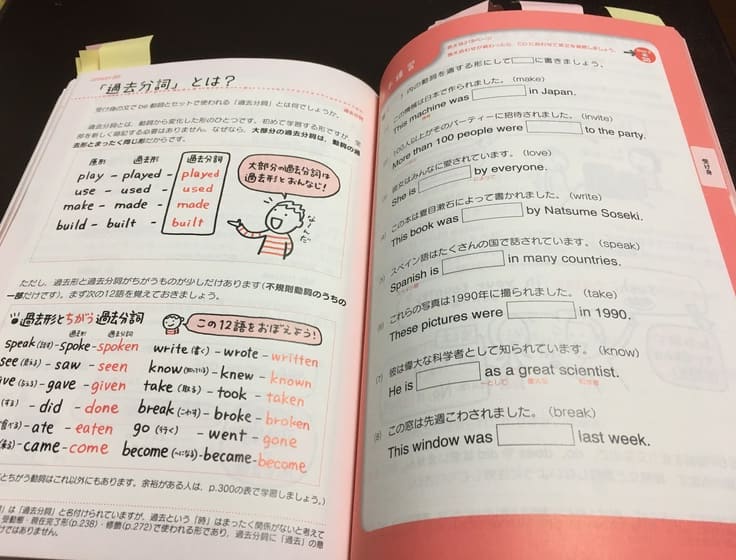 「過去分詞」とは?
受け身の文でbe動詞とセットで使われる「過去分詞」とは何でしょうか。
過去分詞
過去分詞とは、動詞から変化した形のひとつです。初めて学習する形ですが、全
部を新しく暗記する必要はありません。なぜなら、大部分の過去分詞は、動詞の過
去形とまったく同じ形だからです。
原形 過去形 過去分詞
play - played - played
use - used - used
make - made - made
build - built - built
大部分の過去分詞は
過去形とおんなじ!
なーんだ
ただし、過去形と過去分詞がちがうものが少しだけあります(不規則動詞のうちの
一部だけです)。まず次の12語を覚えておきましょう。
過去形とちがう過去分詞
この12語をおぼえよう!
過去形 過去分詞
speak(話す)- spoke - spoken
see(見る)- saw - seen
gave - given
(する) - did - done
- ate - eaten
- came - come
write(書く)- wrote - written
know(知っている)- knew - known
take(取る)- took - taken
break(こわす)- broke - broken
go(行く) - went - gone
become(〜になる)- became - become
とちがう動詞はこれ以外にもあります。余裕がある人は、p.300の表で学習しましょう。)
」は「過去分詞」と名付けられていますが、過去という「時」はまったく関係がないと考えて
受動態・現在完了形(p.238)・修飾(p.272)で使われる形であり、過去分詞に「過去」の意
けではありません。
練習
内の動詞を適する形にして に書きましょう。
この機械は日本で作られました。(make)
This machine was in Japan.
100人以上がそのパーティーに招待されました。(invite)
More than 100 people were to the party.
彼女はみんなに愛されています。(love)
She is by everyone.
この本は夏目漱石によって書かれました。(write)
This book was by Natsume Soseki.
スペイン語はたくさんの国で話されています。(speak)
Spanish is in many countries.
これらの写真は1990年に撮られました。(take)
These pictures were in 1990.
(7) 彼は偉大な科学者として知られています。(know)
He is as a great scientist.
〜として 偉大な 科学者
(8) この窓は先週こわされました。(break)
This window was last week.
受け身